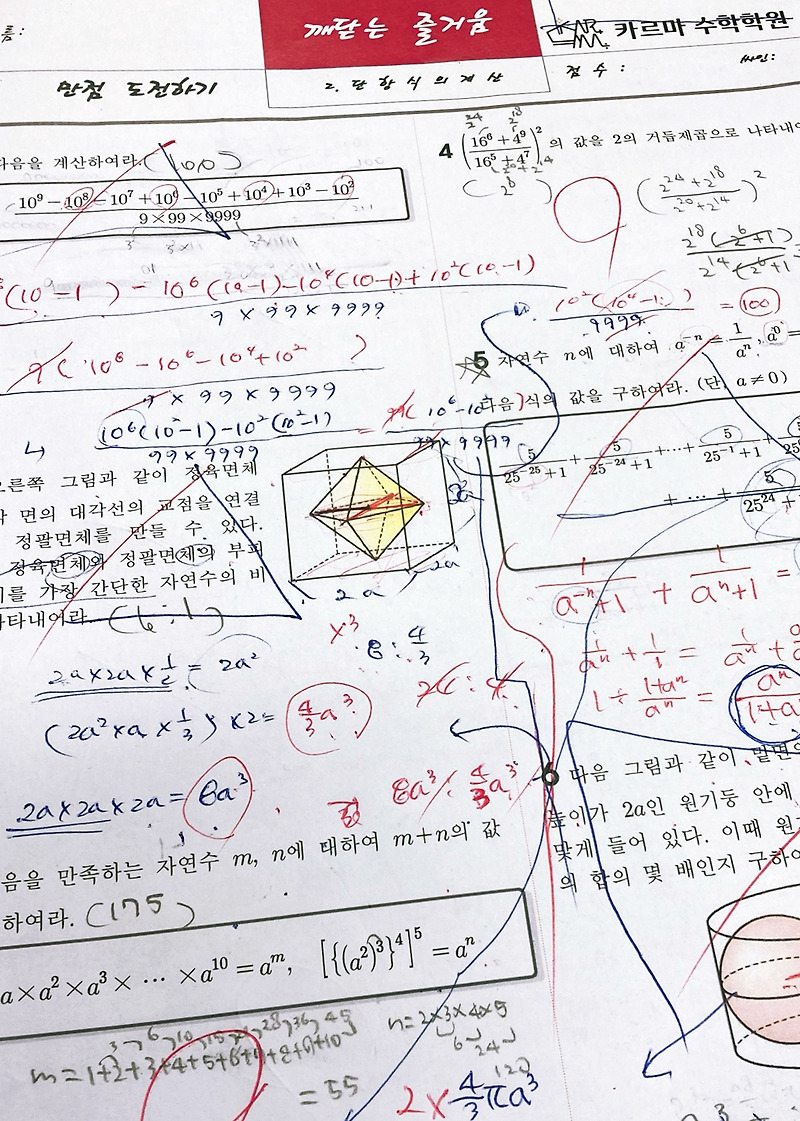 름:
깨닫는 즐거움
카르마 수학학원
만점 도전하기
2. 단항식의 계산
점 수 :
싸인:
다음을 계산하여라. ( 100 )
10⁹ − 10⁸ − 10⁷ + 10⁶ − 10⁵ + 10⁴ + 10³ − 10²
9×99×9999
(10⁹ − 1 ) − 10⁶(10−1)−10⁴(10−1)+10²(10−1)
9 × 99 × 9999
9( 10⁶ − 10⁶ − 10⁴ + 10² )
9 × 99 × 9999
10⁶(10²−1)−10²(10²−1)
99 × 9999
=
99 × 9999
오른쪽 그림과 같이 정육면체
각 면의 대각선의 교점을 연결
정팔면체를 만들 수 있다.
정육면체와 정팔면체의 부피
비를 가장 간단한 자연수의 비
나타내어라. ( 6 : 1 )
2a
2a
2a
2a×2a×½ = 2a²
(2a²×a×⅓)×2= 4/3 a³
2a×2a×2a= 8a³
×3
8 : 4/3
8a³ : 4/3 a³
음을 만족하는 자연수 m, n에 대하여 m+n의 값
하여라. ( 175 )
a×a²×a³× ⋯ ×a¹⁰ = aᵐ, [{(a²)³}⁴]⁵ = aⁿ
3 6 10 15 21 28 36 45
m = 1+2+3+4+5+6+7+8+9+10
= 55
n=2×3×4×5
6
24
120
2× 4/3 πa³
4 ( 16⁶ + 4⁹ / 16⁵ + 4⁷ )² 의 값을 2의 거듭제곱으로 나타내어
( 2⁸ )
( 2²⁴ + 2¹⁸ / 2²⁰ + 2¹⁴ )²
2¹⁸(2⁶+1)
2¹⁴(2⁶+1)
=
10²(10⁴−1)
9999
= 100
5 자연수 n에 대하여 a⁻ⁿ = 1/aⁿ, a⁰=
다음 식의 값을 구하여라. (단, a≠0)
5/(25⁻²⁵+1) + 5/(25⁻²⁴+1) +⋯+ 5/(25⁻¹+1) +
+ ⋯ + 5/(25²⁴ +
1/(a⁻ⁿ+1) + 1/(aⁿ+1) =
1/aⁿ + 1/1 =
1 ÷ (1+aⁿ)/aⁿ =
6 다음 그림과 같이 밑면의
높이가 2a인 원기둥 안에
맞게 들어 있다. 이때 원
의 합의 몇 배인지 구하여